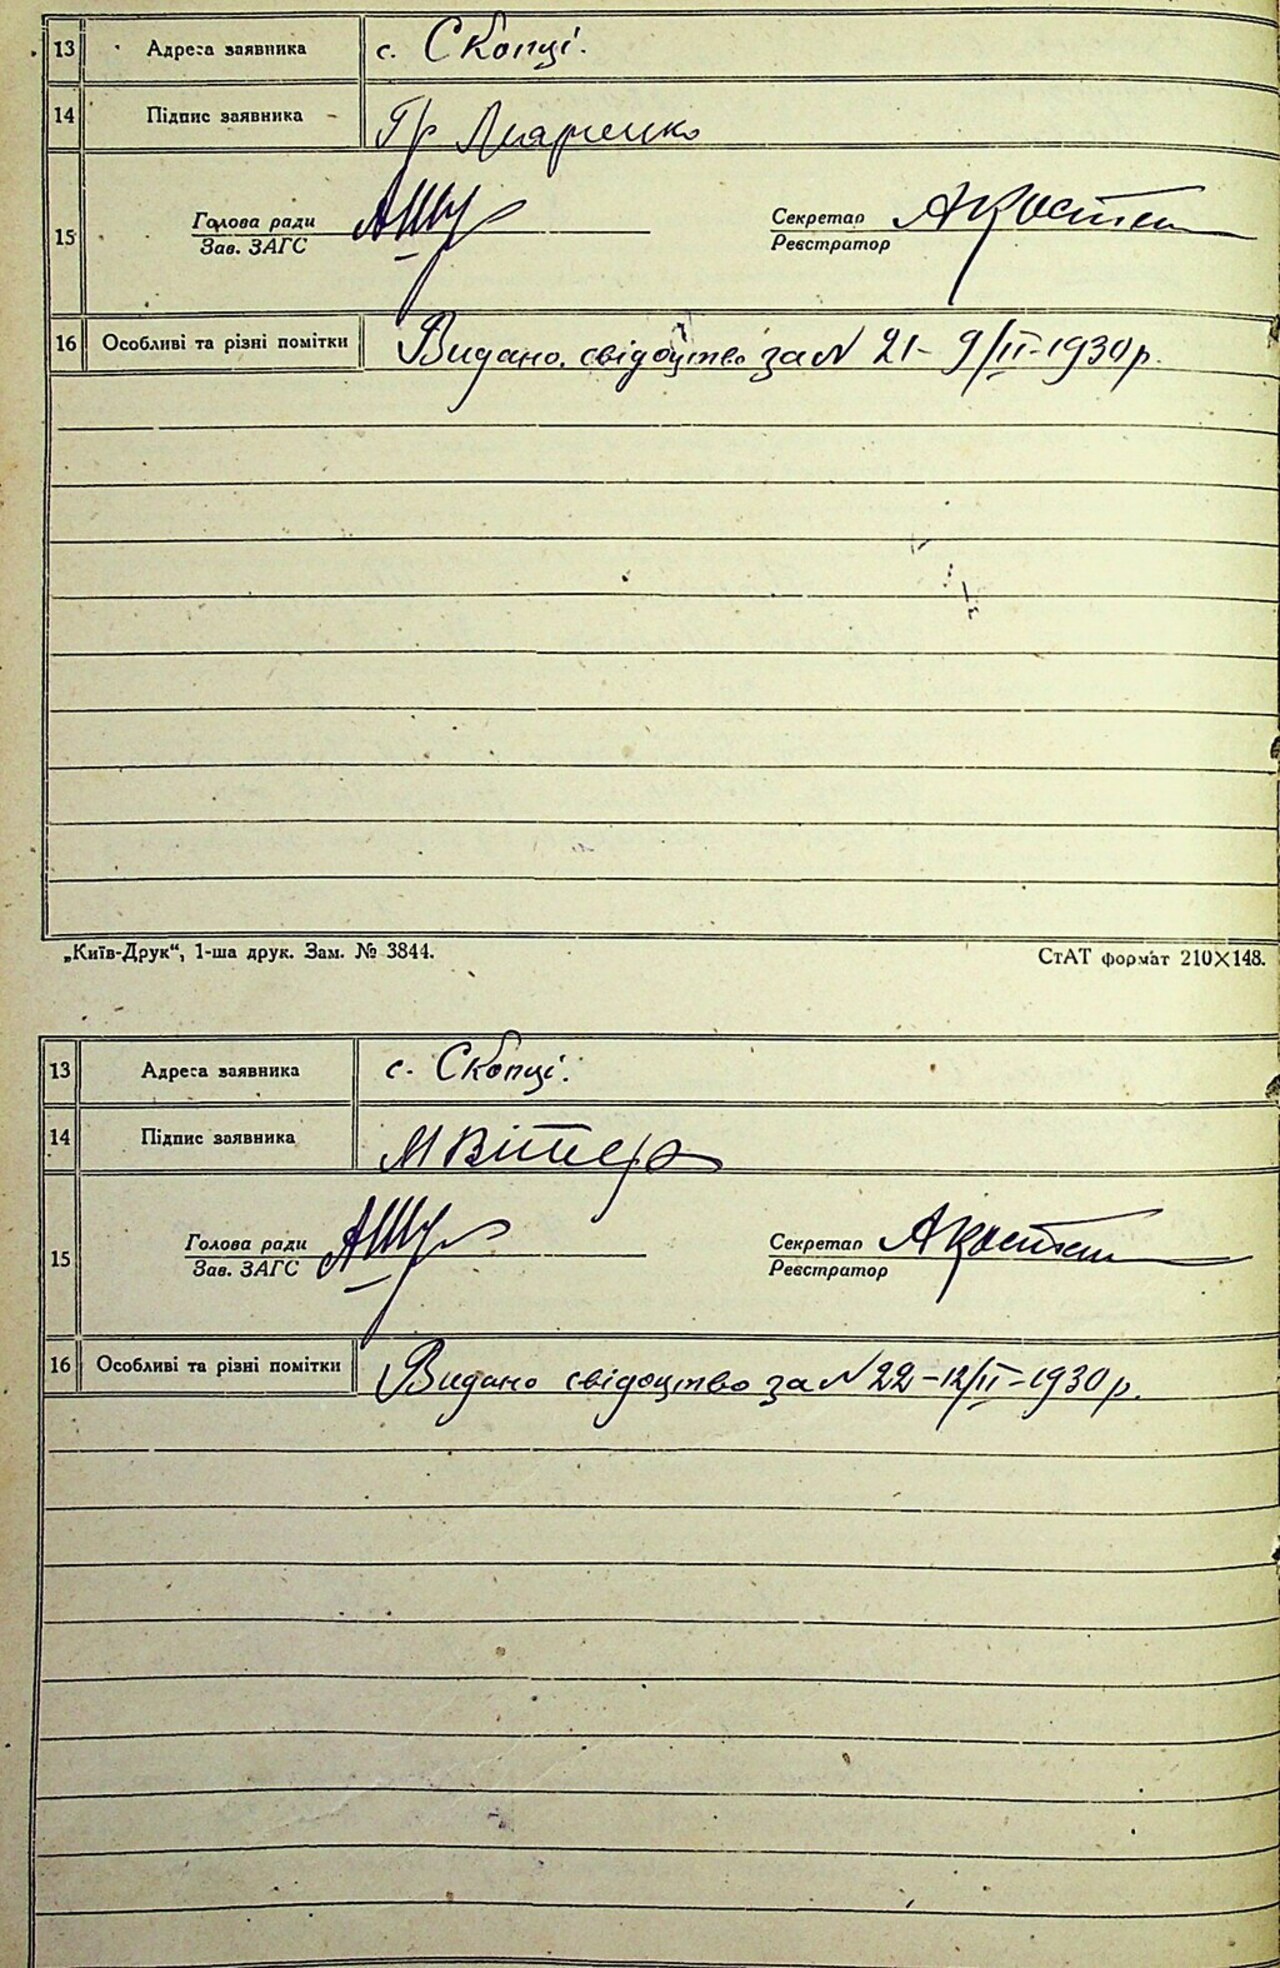 13 Адреса заявника с. Скопці.
14 Підпис заявника Гр
15 Голова ради
Зав. ЗАГС
Секретар
Реєстратор
16 Особливі та різні помітки Видано свідоцтво за N 21 - 9/II - 1930 р.
„Київ-Друк“, 1-ша друк. Зам. № 3844. СтАТ формат 210×148.
13 Адреса заявника с. Скопці.
14 Підпис заявника М Вітер
15 Голова ради
Зав. ЗАГС
Секретар
Реєстратор
16 Особливі та різні помітки Видано свідоцтво за N 22 - 12/II - 1930 р.